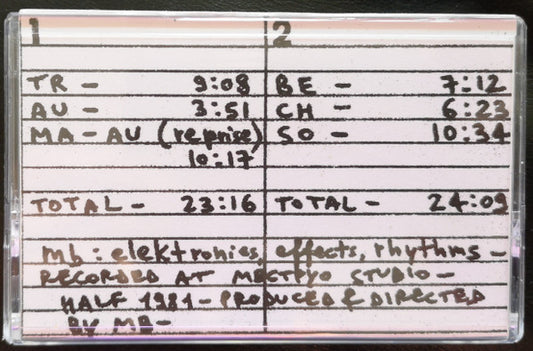 1 2
TR - 9:08 BE - 7:12
AU - 3:51 CH - 6:23
MA-AU (reprise) SO - 10:34
10:17
TOTAL - 23:16 TOTAL - 24:09
mb: elektronics, effects, rhythms -
RECORDED AT MECTPYO STUDIO -
HALF 1981 - PRODUCED & DIRECTED
BY MB -